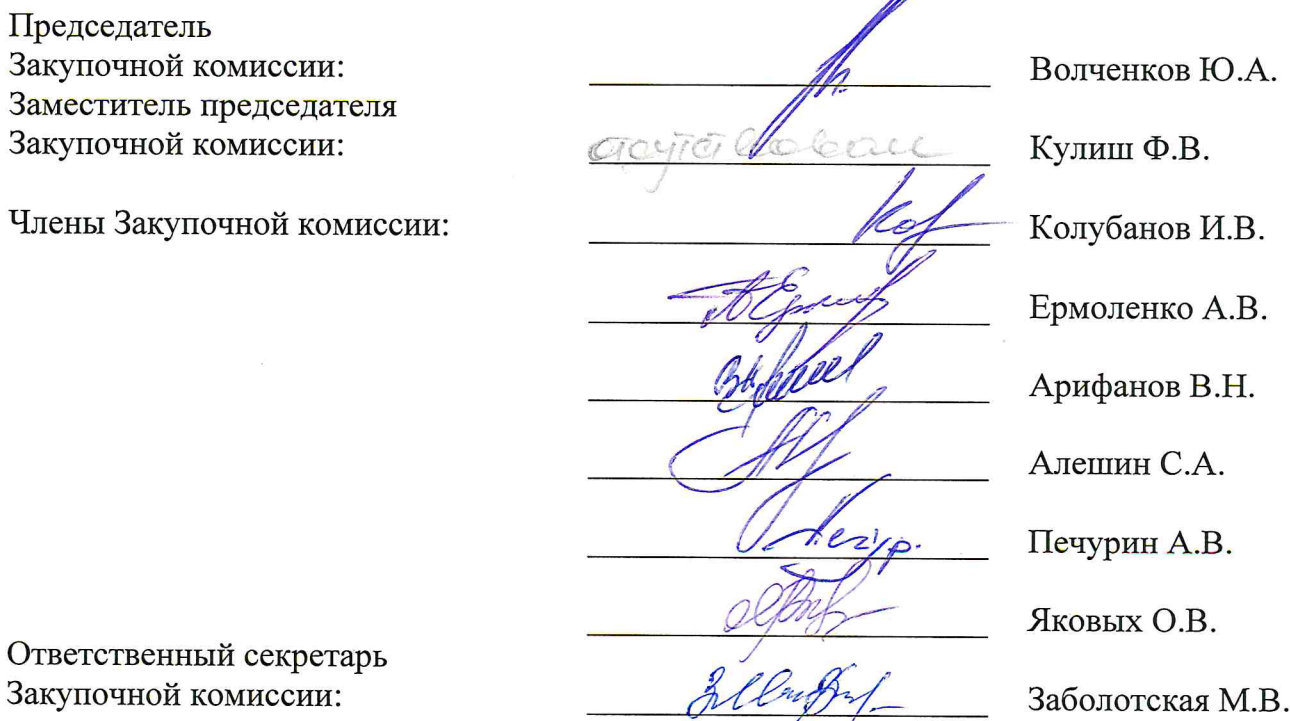 Председатель
Закупочной комиссии: Волченков Ю.А.
Заместитель председателя
Закупочной комиссии: отсутствовал Кулиш Ф.В.
Члены Закупочной комиссии: Колубанов И.В.
Ермоленко А.В.
Арифанов В.Н.
Алешин С.А.
Печурин А.В.
Яковых О.В.
Ответственный секретарь
Закупочной комиссии: Заболотская М.В.